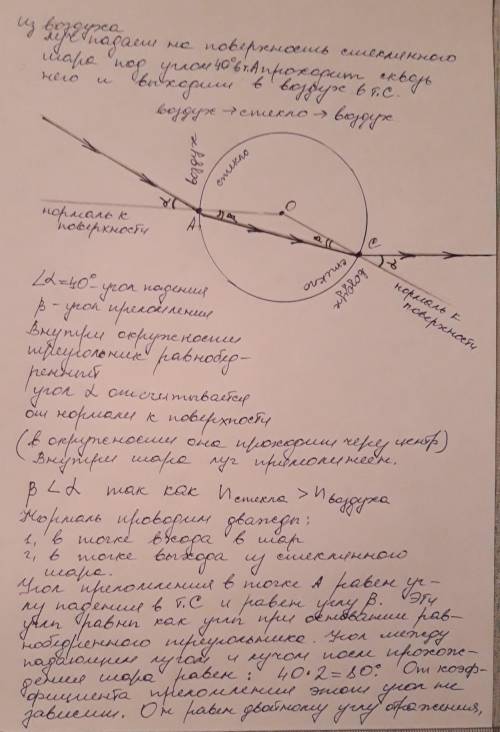 Из воздуха
луч падает на поверхность стеклянного
шара под углом 40° в т.А проходит сквозь
него и выходит в воздух в т.С.
воздух → стекло → воздух
воздух
стекло
O
нормаль к
поверхности
α
A
β
β
C
α
стекло
воздух
нормаль к
поверхности
∠α=40°- угол падения
β - угол преломления
Внутри окружности
треугольник равнобед-
ренный
угол α отсчитывается
от нормали к поверхности
(в окружности она проходит через центр)
Внутри шара луч прямолинеен.
β < α так как n стекла > n воздуха
Нормаль проводим дважды:
1, в точке входа в шар
2, в точке выхода из стеклянного
шара.
Угол преломления в точке А равен уг-
лу падения в т.С и равен углу β. Эти
углы равны как углы при основании рав-
нобедренного треугольника. Угол между
падающим лучом и лучом после прохож-
дения шара равен: 40·2=80°. От коэф-
фициента преломления этот угол не
зависит. Он равен двойному углу отражения,